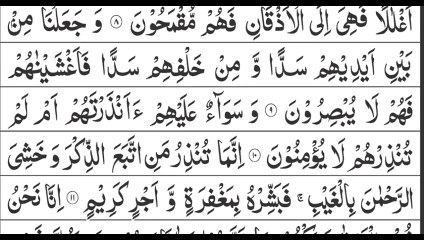 اَغْلٰلًا فَهِیَ اِلَی الْاَذْقَانِ فَهُمْ مُّقْمَحُوْنَ ۸ وَ جَعَلْنَا مِنْۢ
بَیْنِ اَیْدِیْهِمْ سَدًّا وَّ مِنْ خَلْفِهِمْ سَدًّا فَاَغْشَیْنٰهُمْ
فَهُمْ لَا یُبْصِرُوْنَ ۹ وَ سَوَآءٌ عَلَیْهِمْ ءَاَنْذَرْتَهُمْ اَمْ لَمْ
تُنْذِرْهُمْ لَا یُؤْمِنُوْنَ ۱۰ اِنَّمَا تُنْذِرُ مَنِ اتَّبَعَ الذِّكْرَ وَ خَشِیَ
الرَّحْمٰنَ بِالْغَیْبِ ۚ فَبَشِّرْهُ بِمَغْفِرَةٍ وَّ اَجْرٍ كَرِیْمٍ ۱۱ اِنَّا نَحْنُ